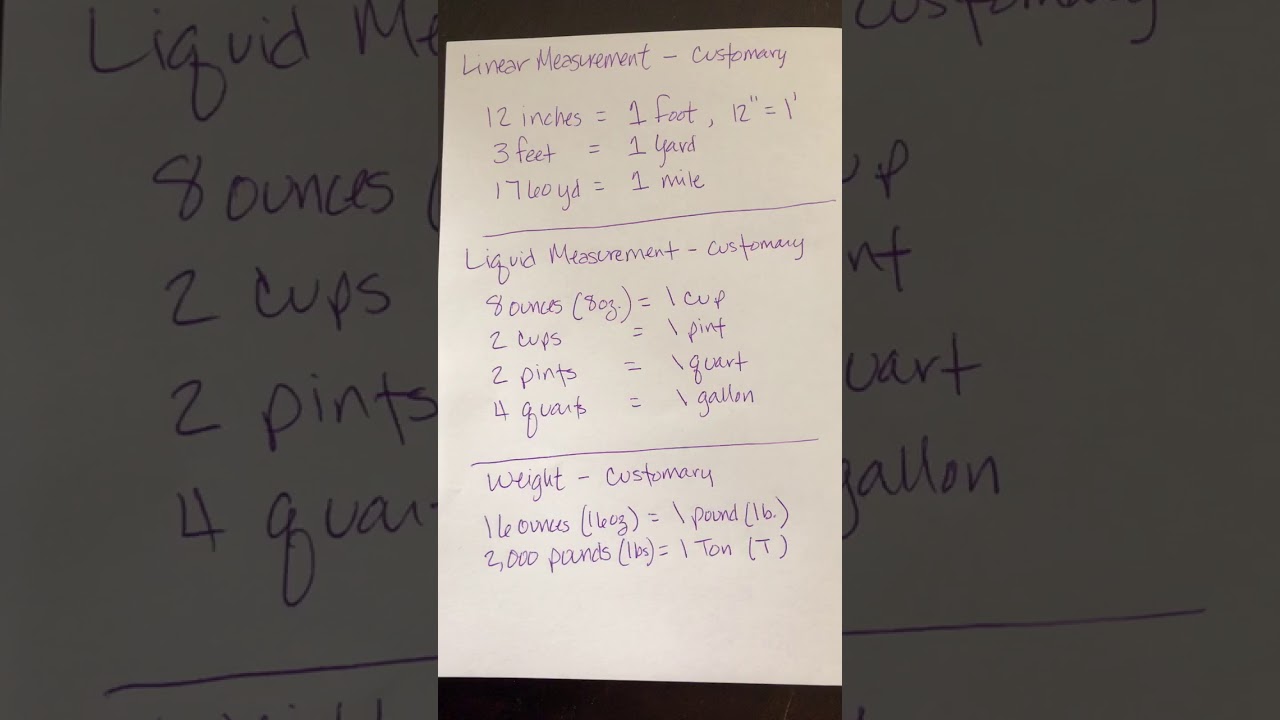 Linear Measurement - Customary
12 inches = 1 foot, 12" = 1'
3 feet = 1 yard
1760 yd = 1 mile
Liquid Measurement - Customary
8 ounces (8oz.) = 1 cup
2 cups = 1 pint
2 pints = 1 quart
4 quarts = 1 gallon
Weight - Customary
16 ounces (16oz) = 1 pound (lb.)
2,000 pounds (lbs) = 1 Ton (T)